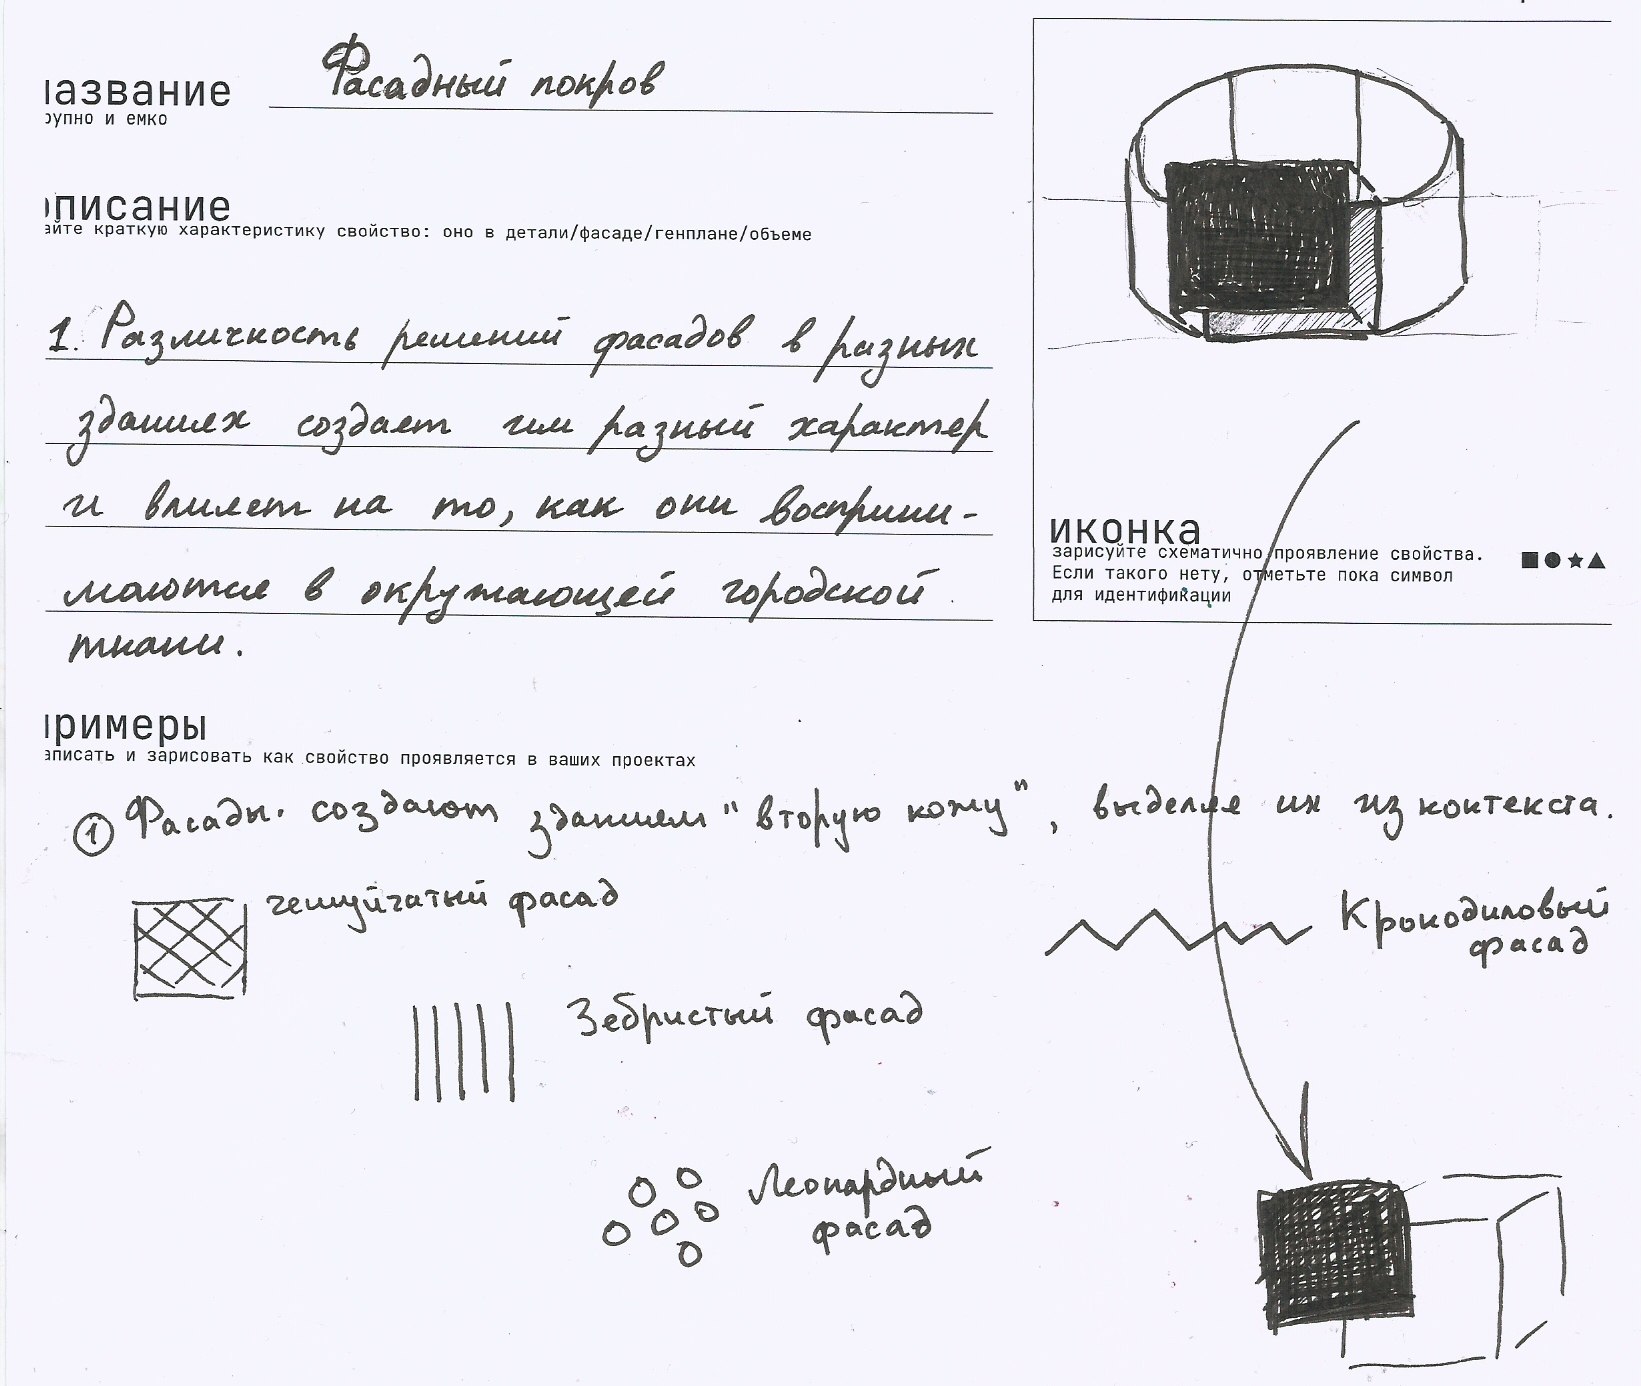 название
Фасадный покров
рупно и емко
описание
айте краткую характеристику свойство: оно в детали/фасаде/генплане/объеме
1. Различность решений фасадов в разных
зданиях создает им разный характер
и влияет на то, как они восприни-
маются в окружающей городской
ткани.
иконка
зарисуйте схематично проявление свойства.
Если такого нету, отметьте пока символ
для идентификации
примеры
аписать и зарисовать как свойство проявляется в ваших проектах
1 Фасады создают зданием "вторую кожу", выделяя их из контекста.
чешуйчатый фасад
Крокодиловый
фасад
Зебристый фасад
Леопардный
фасад